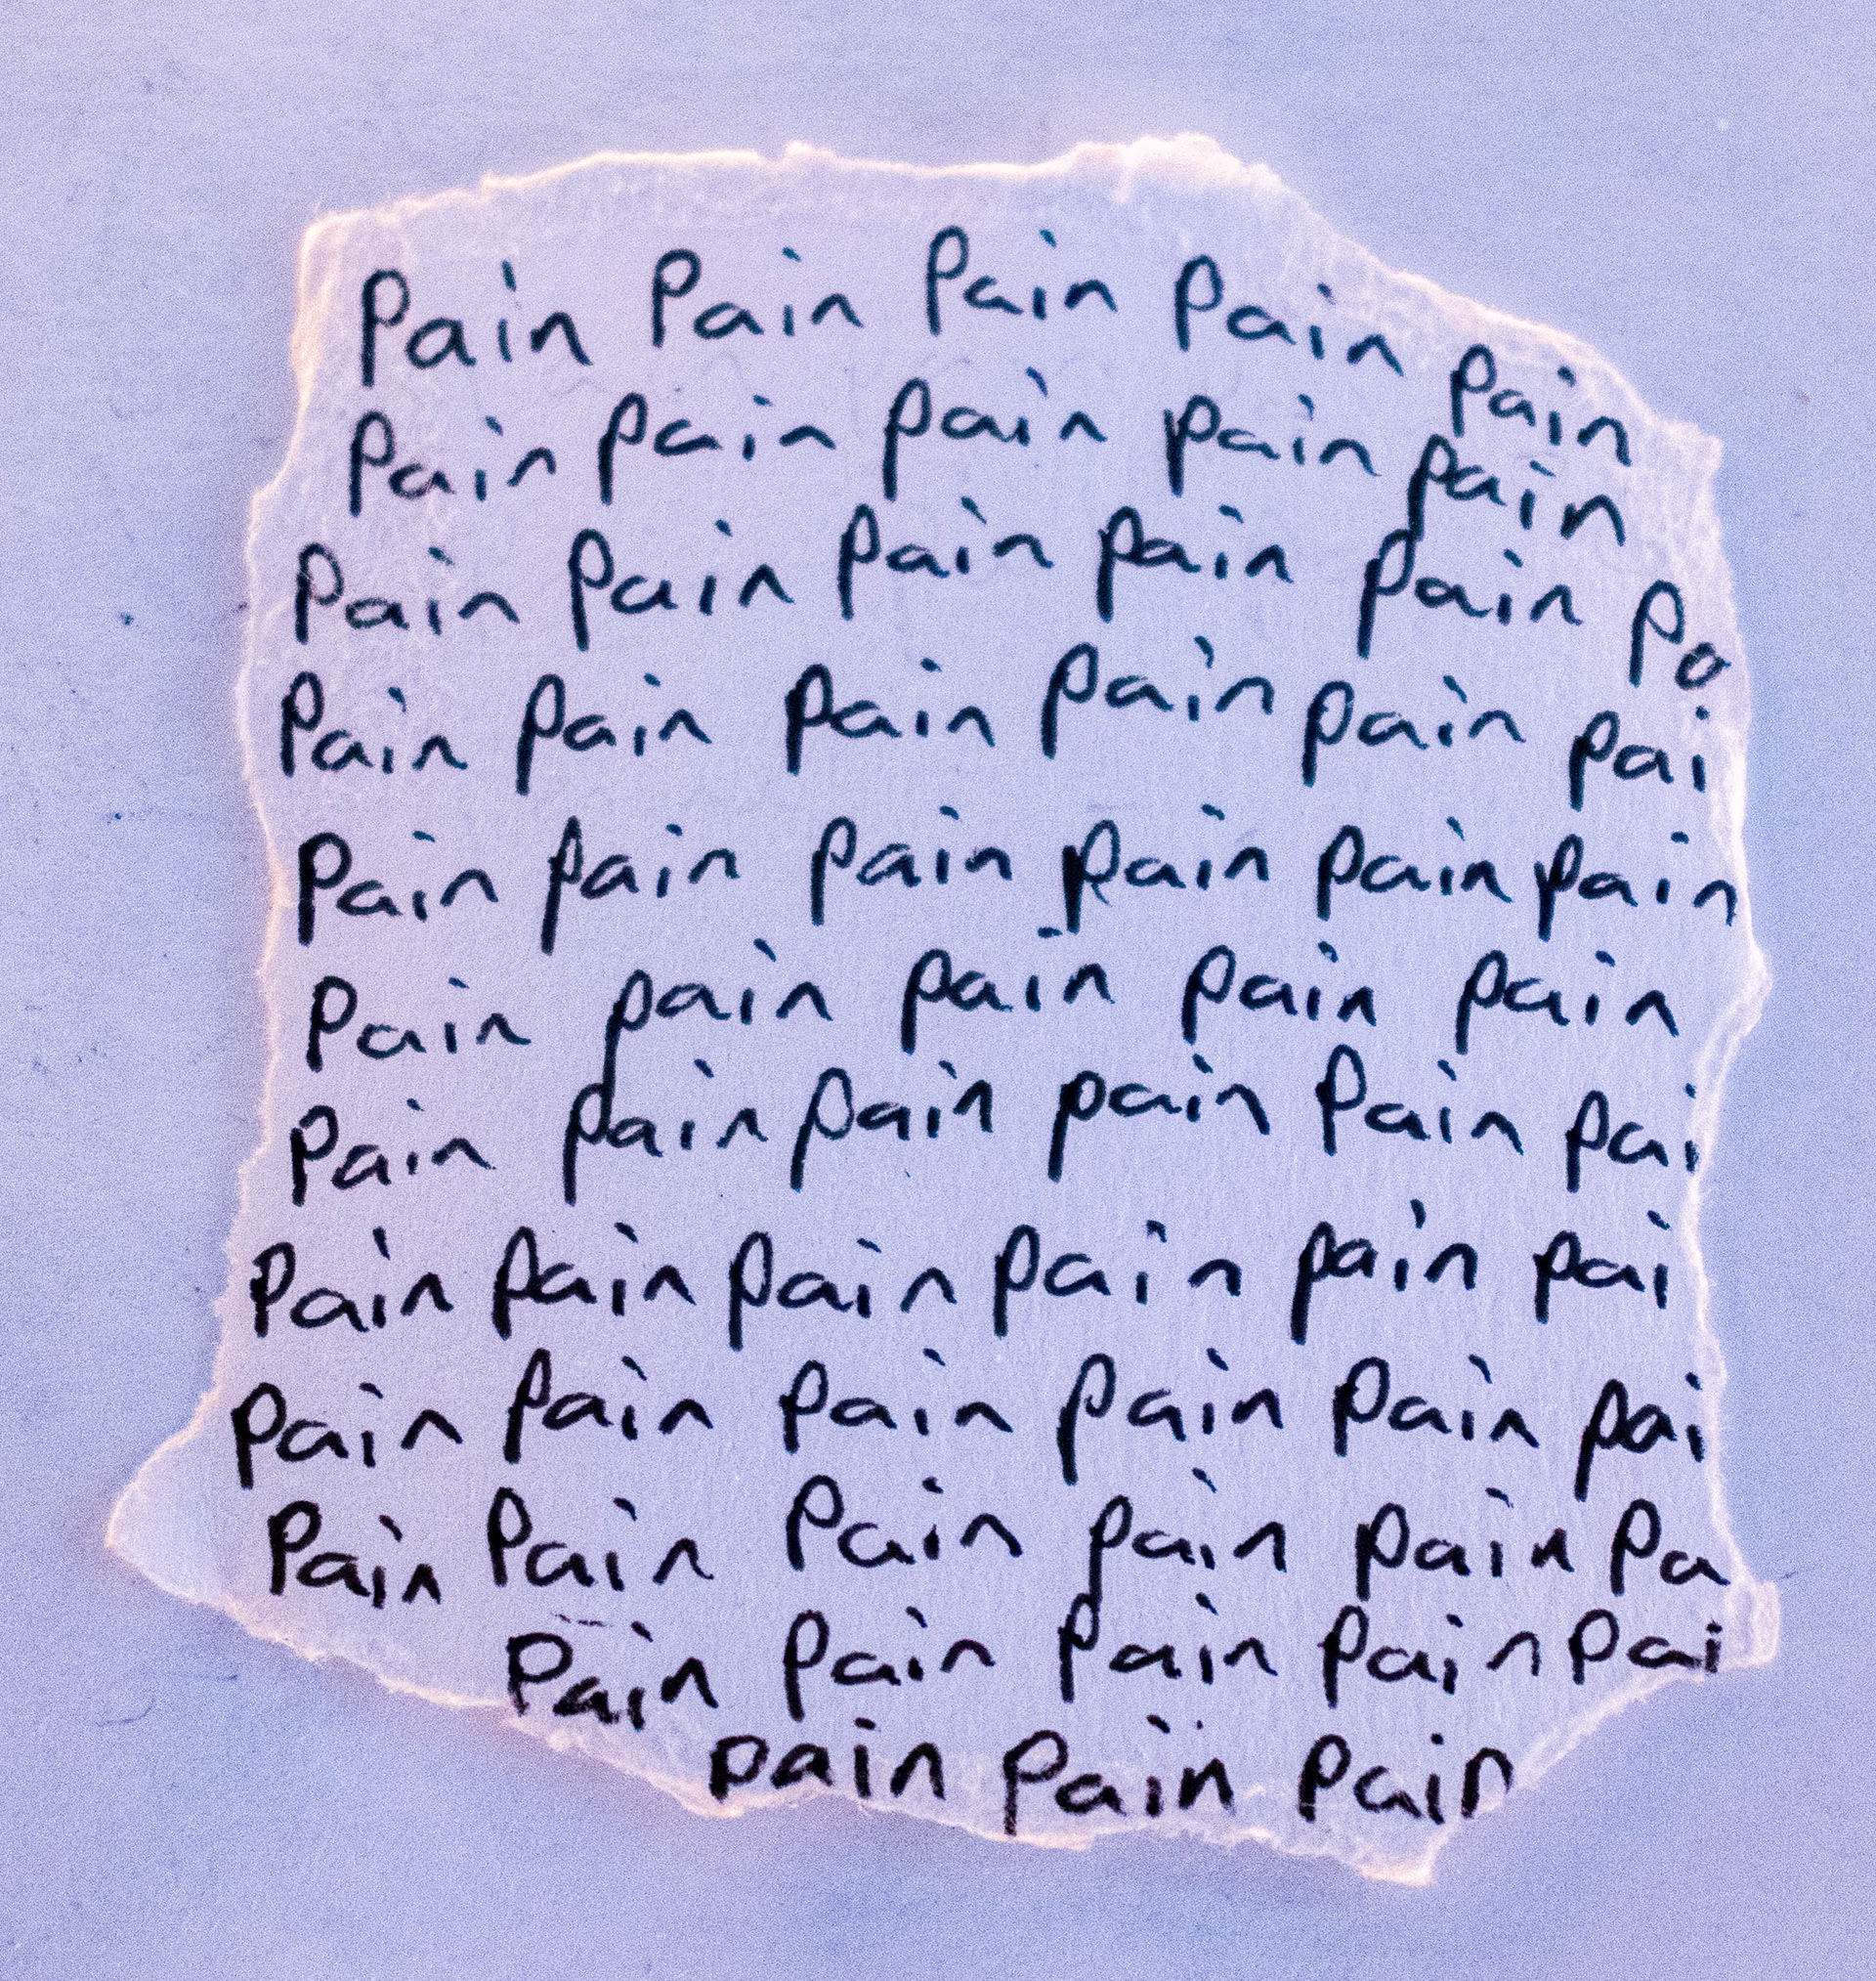 Pain Pain Pain Pain Pain
Pain pain pain pain pain
Pain Pain pain pain pain Po
Pain pain pain pain pain pai
Pain pain pain pain pain pain
Pain pain pain pain pain
Pain pain pain pain Pain pai
Pain pain pain pain pain pai
Pain pain pain pain pain pai
Pain Pain Pain pain pain Pa
Pain pain pain pain pai
pain Pain Pain